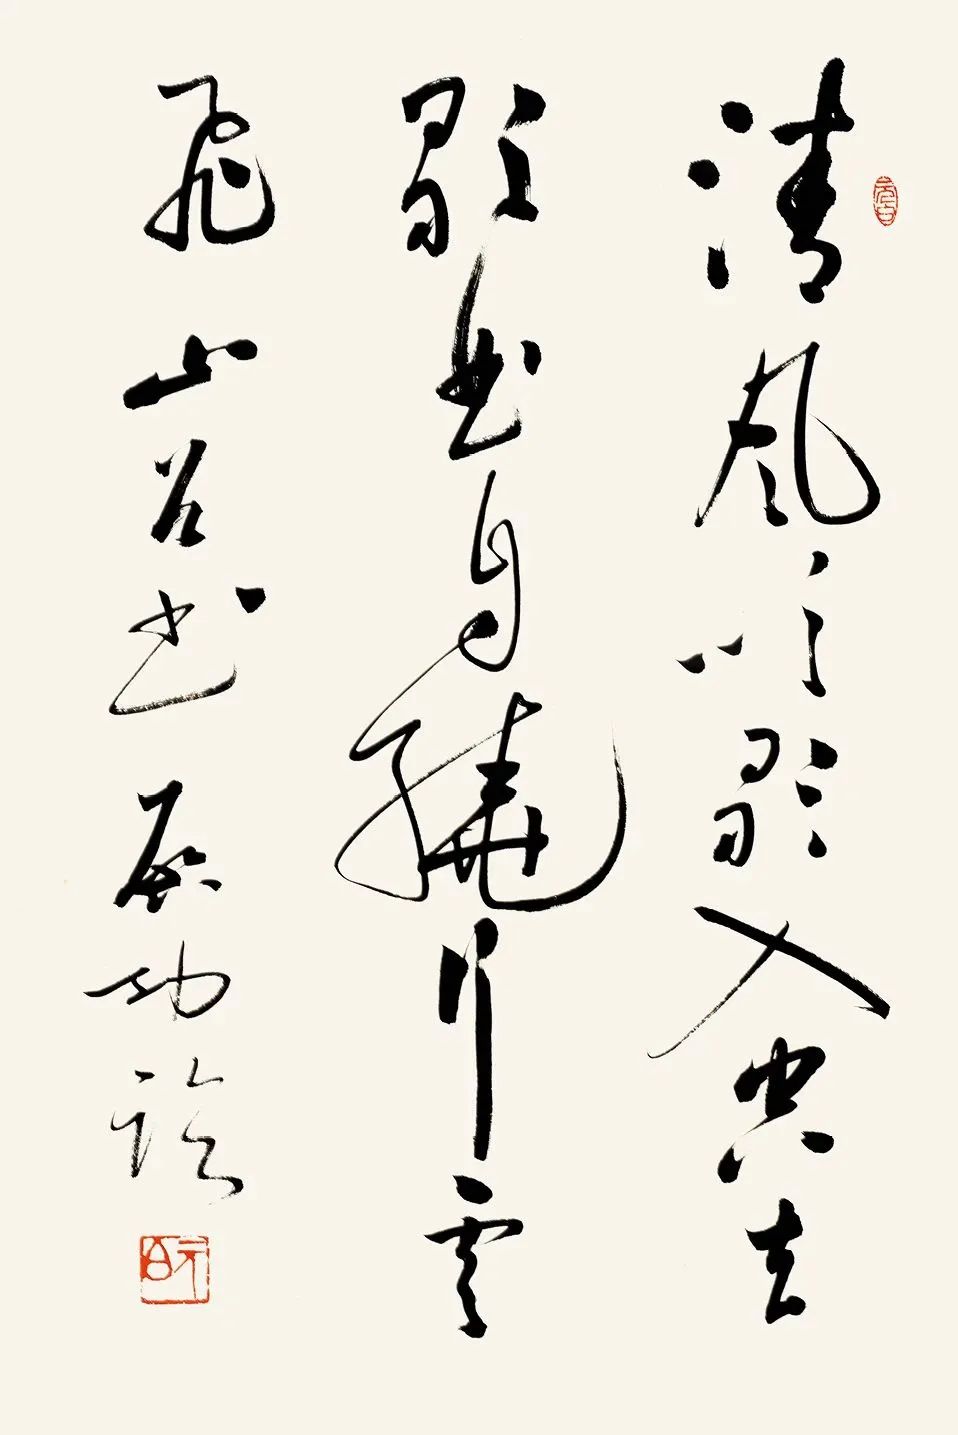 清風吹歌入空去
歌曲自繞行雲
飛 山谷書 啟功臨